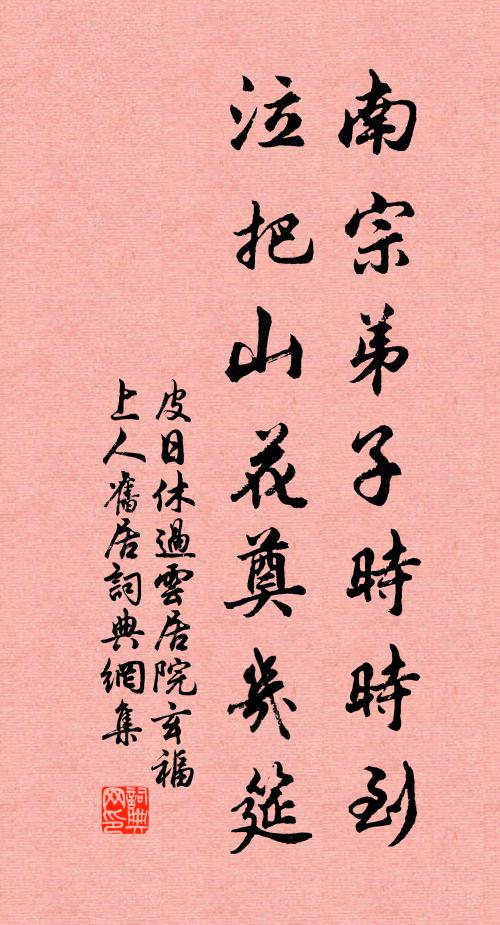 南宗弟子時時到
泣把山花奠几筵
皮日休過雲居院玄福
上人舊居詞典網集
詞典網印